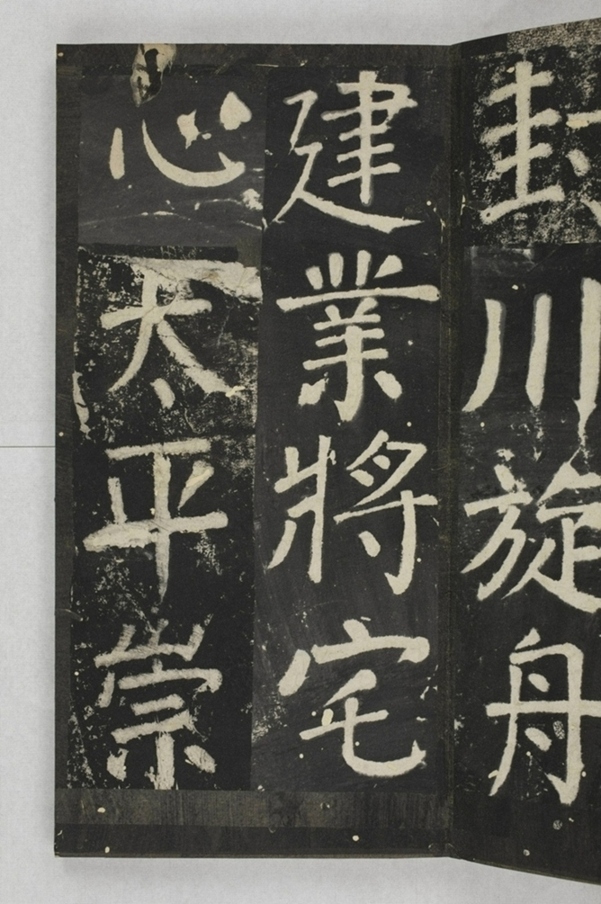 封川旋舟
建業將宅
心太平崇